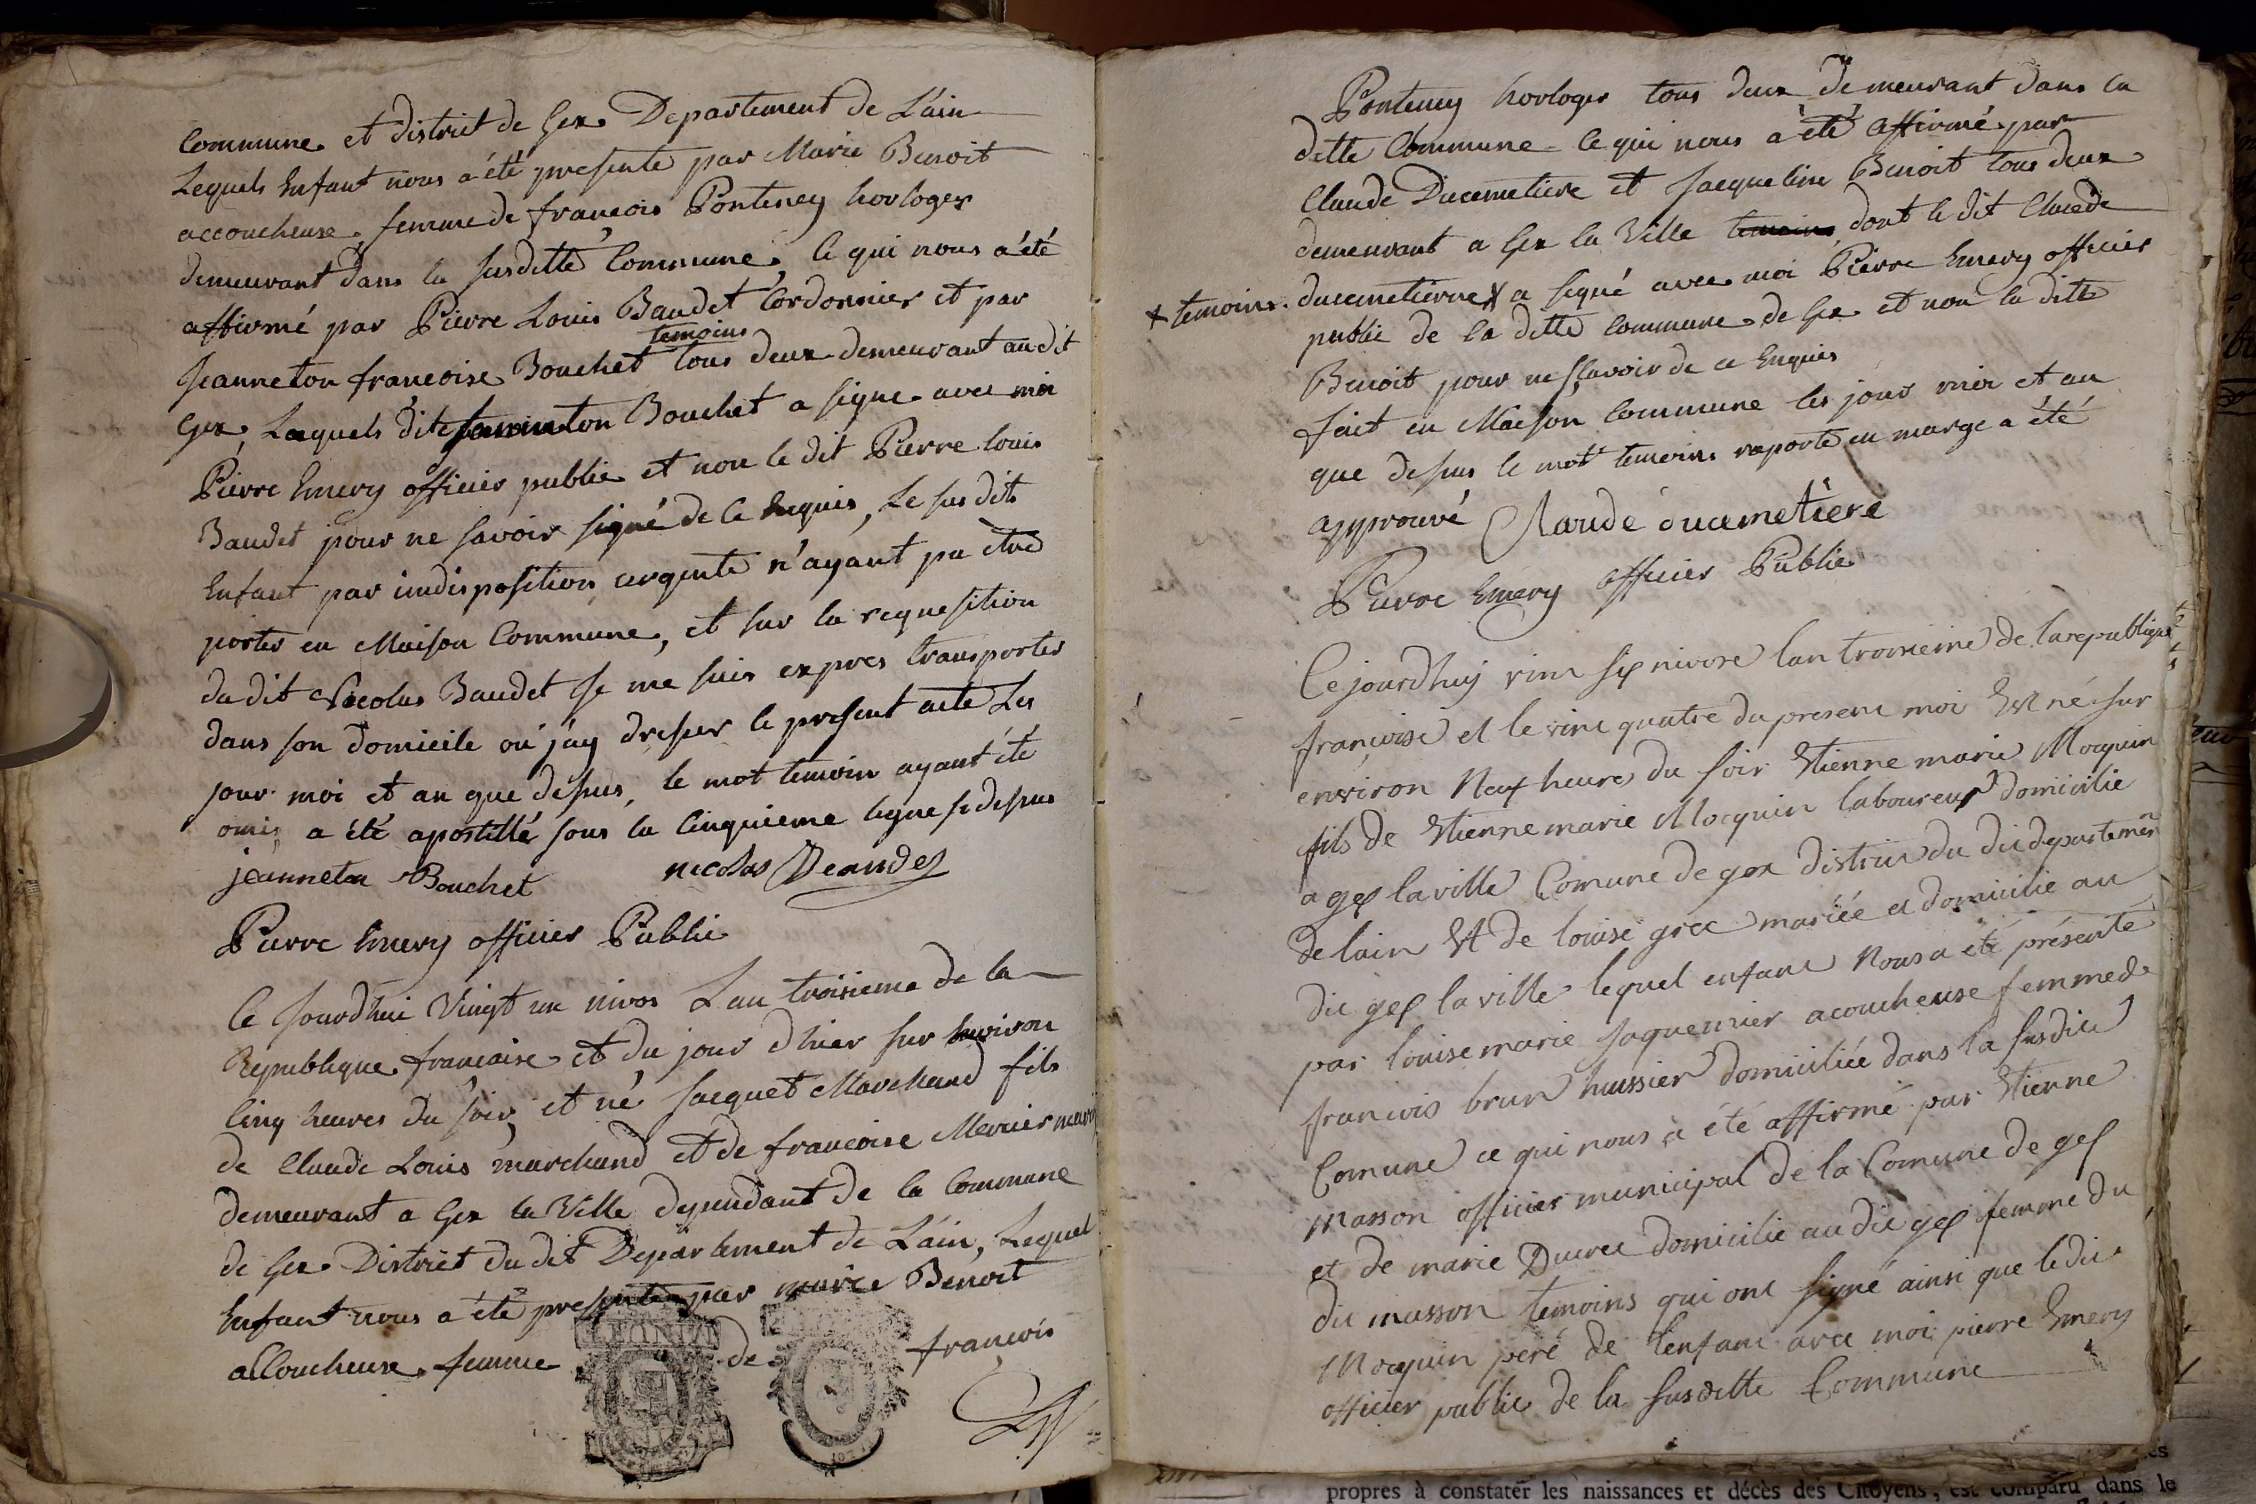 Commune et district de Gex Departement de L'ain
Lequels Enfant nous a été presenté par Marie Benoit
accoucheuse femme de françois Ponteney horloger
demeurant dans la susditte Commune, ce qui nous a été
affirmé par Pierre Louis Baudet Cordonnier et par
temoins
Jeanneton francoise Bouchet tous deux demeurant audit
Gex, Laquels dite Jeanneton Bouchet a signe avec moi
Pierre Emery officier public et non le dit Pierre louis
Baudet pour ne savoir signé de ce Enquis, Le susdits
Enfant par indisposition urgente n'ayant pu être
porter en Maison Commune, et sur la requesition
du dit Nicolas Baudet Je me suis expres transporter
dans son domicile ou j'ay dresser le present acte Les
jour moi et an que desus, le mot temoin ayant été
omis a été apostillé sous la Cinquieme ligne si desus
jeanneton Bouchet nicolas
Pierre Emery officier Public
Ce Jourdhui Vingt un nivos L'an troisieme de la
Republique francaise et du jour d'hier sur Environ
Cinq heures du soir, et né Jacquet Marchand fils
de Claude Louis marchand et de francoise Mercier
demeurant a Gex la Ville dependant de la Commune
de Gex District du dit Departement de L'ain, Lequel
Enfant nous a été presenté par marie Benoit
alloucheuse femme de françois
Ponteney horloger tous deux demeurant dans la
ditte Commune ce qui nous a été affirmé par
Claude Ducemetiere et Jacqueline Benoit tous deux
demeurant a Gex la Ville temoins dont le dit Claude
+ temoins. ducemetierre + a signé avec moi Pierre Emery officier
public de la ditte Commune de Gex et non la ditte
Benoit pour ne savoir de ce Enquis
fait en Maison Commune les jour moi et an
que desus le mot temoins raporté en marge a été
approuvé Claude ducemetiere
Pierre Emery officier Public
Cejourdhuy vint six nivose lan troisieme de la republique
françoise et le vint quatre du present moi Est né sur
environ Neuf heures du soir Etienne marie Mocquin
fils de Etienne marie Mocquin laboureur domicilie
a gex la ville Comune de gex distric du dit departement
de lain Et de louise grec mariée et domicilie au
dit gex la ville lequel enfant Nous a été présenté
par louise marie Jaquemier acoucheuse femme de
francois brun huissier domiciliée dans la susdite
Comune ce qui nous a été affirmé par Etienne
Masson officier municipal de la Comune de gex
et de marie Ducret domicilie au dit gex femme du
dit masson temoins qui ont signé ainsi que le dit
Mocquin peré de l'enfant avec moi pierre Emery
officier public de la susditte Commune
propres à constater les naissances et décès des Citoyens, est comparu dans le